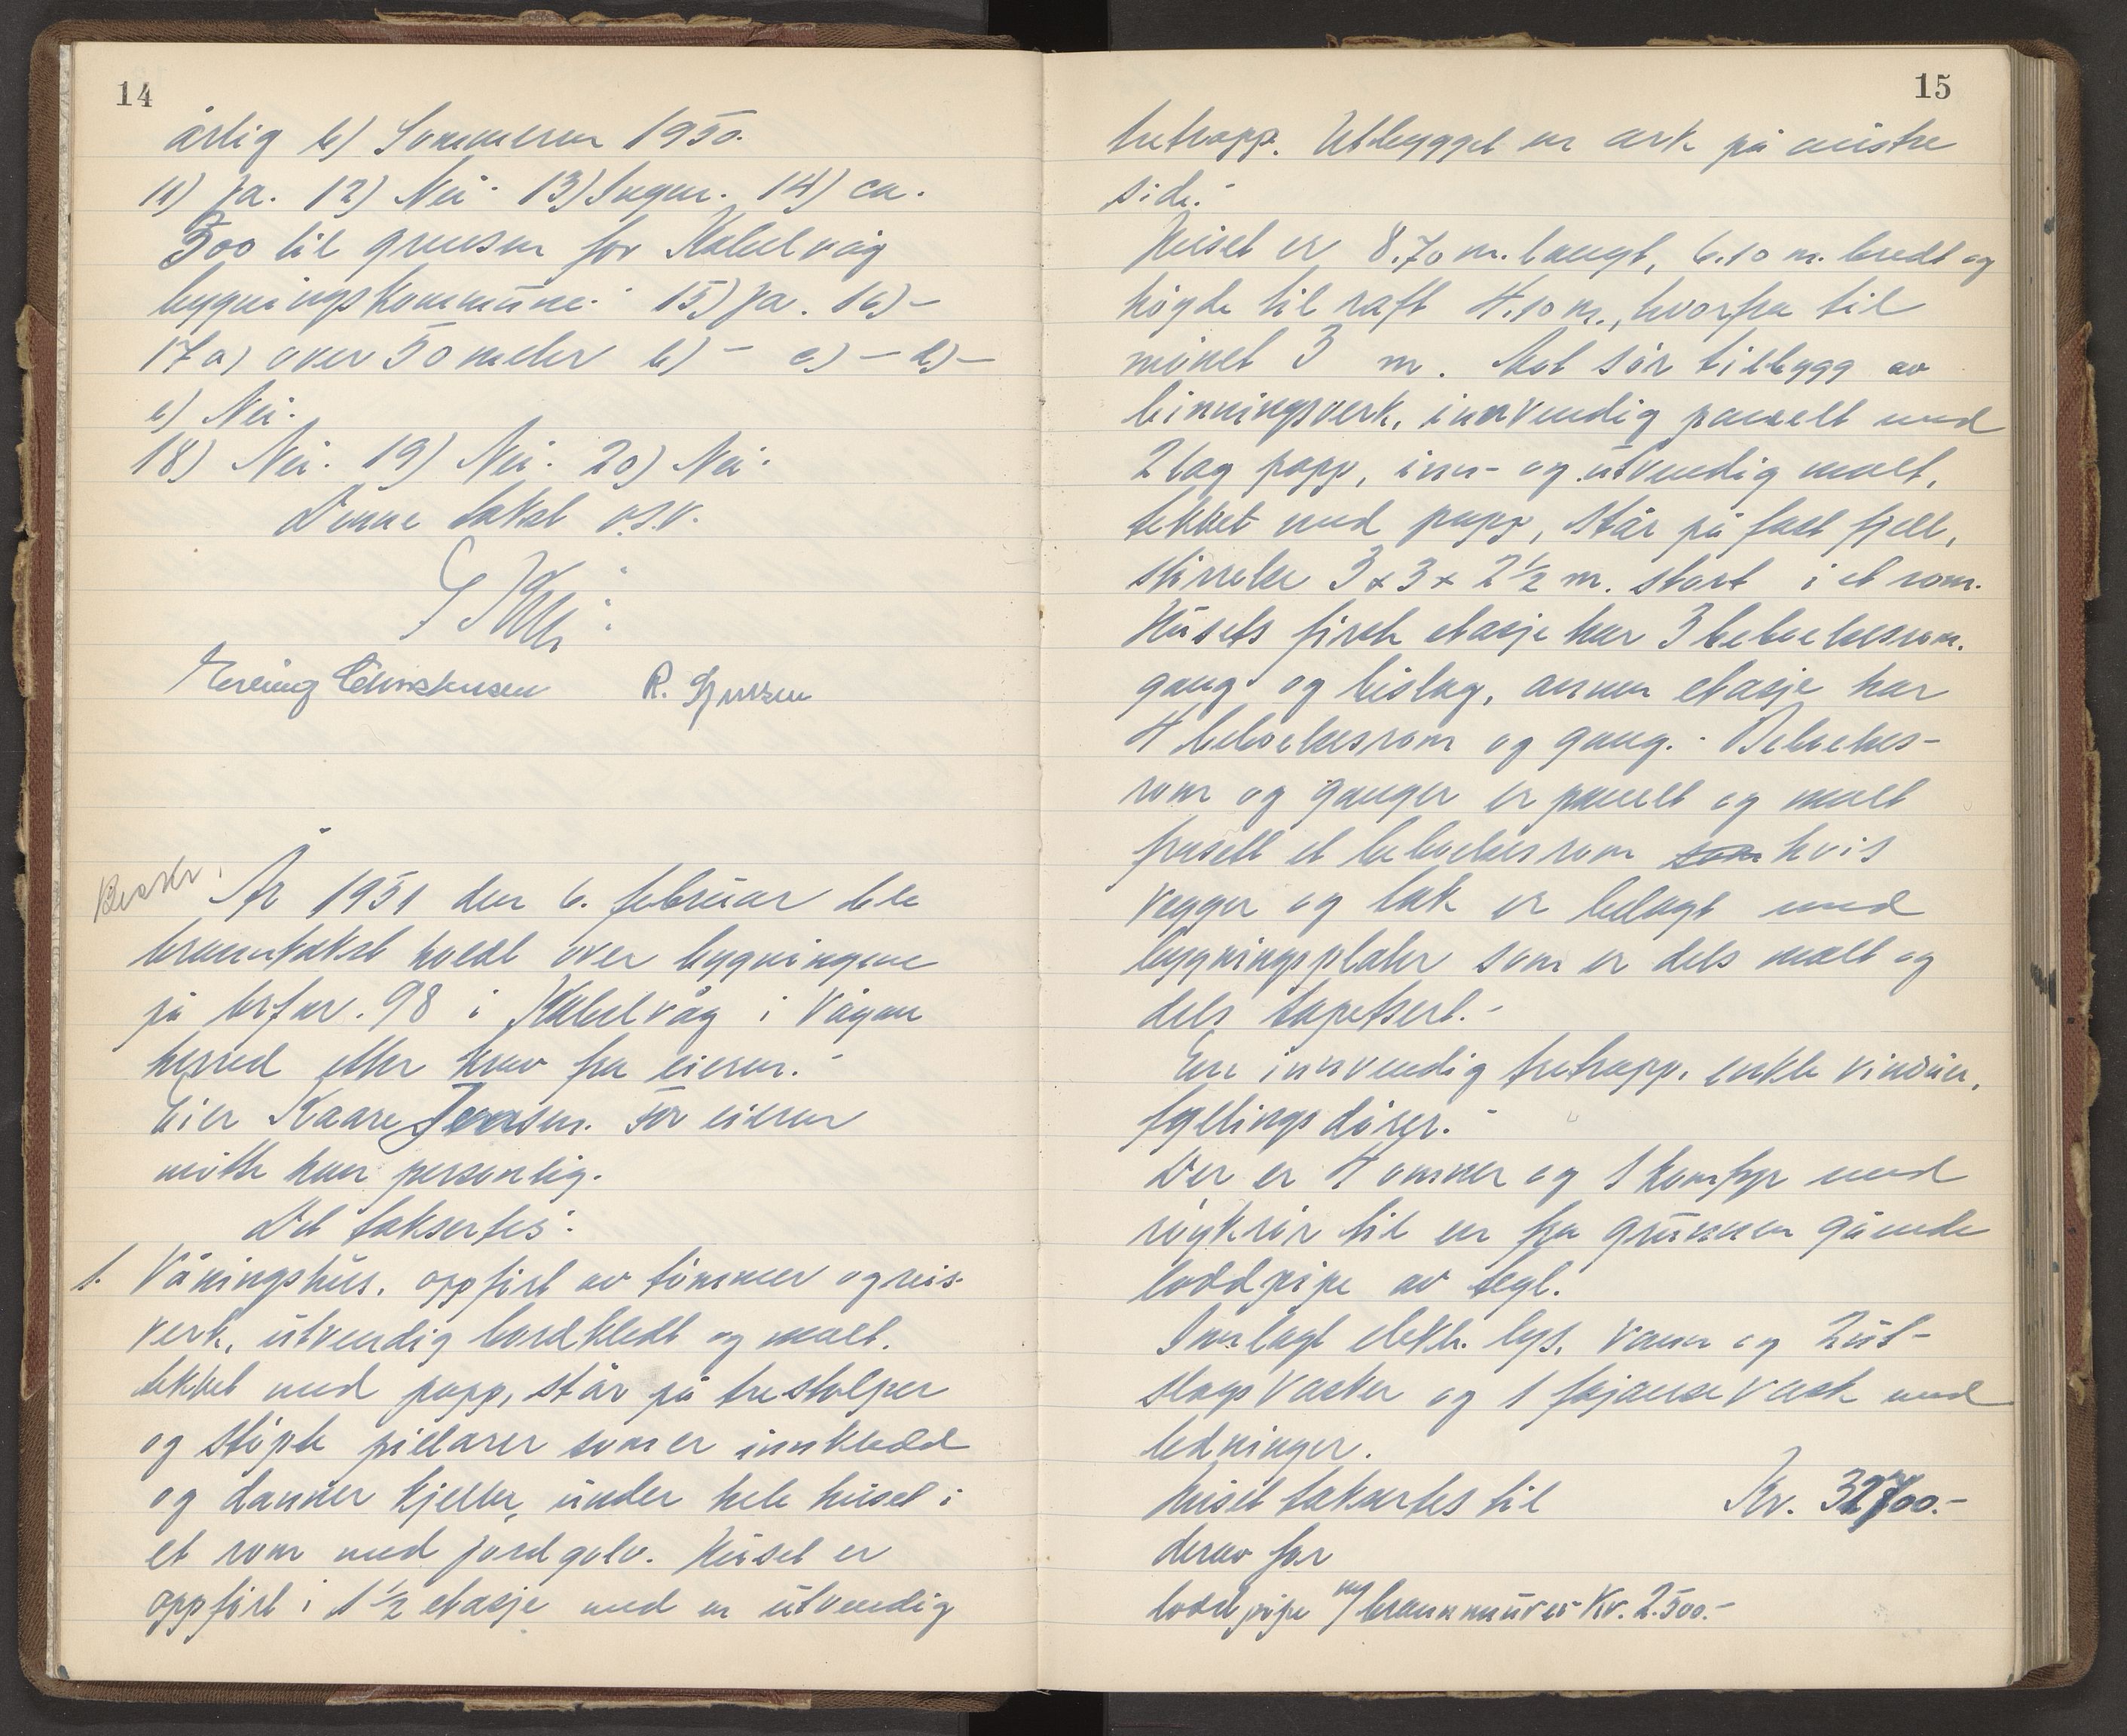 14
årlig b) Sommeren 1950.
11) Ja. 12) Nei. 13) Ingen. 14) ca.
500 til grensen for Kabelvåg
bygningskommune. 15) Ja. 16) –
17 a) over 50 meter b) – c) – d) –
e) Nei.
18) Nei. 19) Nei. 20) Nei.
Denne takst o.s.v.
Erling Christensen R.
Beskr.
År 1951 den 6. februar ble
branntakst holdt over bygningene
på brfnr. 98 i Kabelvåg i Vågan
herred etter krav fra eieren.-
Eier Kaare Jensen. For eieren
møtte han personlig.
Det taksertes:
1. Våningshus, oppført av tømmer og reis-
verk, utvendig bordkledt og malt,
tekket med papp, står på trestolper
og støpte pillarer som er innkledd
og danner kjeller under hele huset i
et rom med jordgolv. Huset er
oppført i 1 1/2 etasje med en utvendig
15
tretrapp. Utbygget en ark på østre
side.-
Huset er 8.70 m. langt, 6.10 m. bredt og
høgde til raft 4.10 m., hvorfra til
mønet 3 m. Mot sør tilbygg av
binningsverk, innvendig panelt med
2 lag papp, inn- og utvendig malt,
tekket med papp, står på fast fjell,
størrelse 3 x 3 x 2 1/2 m. stort i et rom.
Husets første etasje har 3 beboelsesrom.
gang og bislag, annen etasje har
4 beboelsesrom og gang.- Beboelses-
rom og ganger er panelt og malt
frasett et beboelsesrom som hvis
vegger og tak er belagt med
bygningsplater som er dels malt og
dels tapetsert.-
En innvendig tretrapp, enkle vinduer,
fyllingsdører.-
Der er 4 ovner og 1 komfyr med
røykrør til en fra grunnen gående
loddpipe av tegl.
Innlagt elektr. lys, vann og 2 ut-
slagsvasker og 1 fajansevask med
ledninger.
Huset taksertes til Kr. 32700.-
derav for
loddpipe m/ brannmurer Kr. 2.500.-